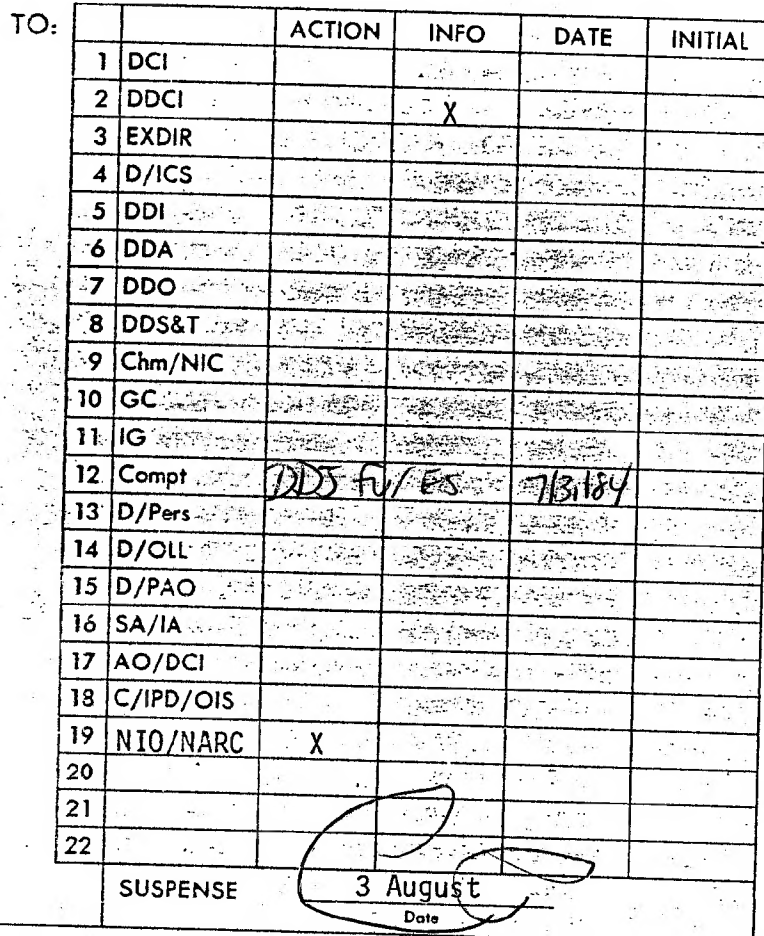 TO: ACTION INFO DATE INITIAL
1 DCI
2 DDCI X
3 EXDIR
4 D/ICS
5 DDI
6 DDA
7 DDO
8 DDS&T
9 Chm/NIC
10 GC
11 IG
12 Compt
13 D/Pers
14 D/OLL
15 D/PAO
16 SA/IA
17 AO/DCI
18 C/IPD/OIS
19 NIO/NARC X
20
21
22
SUSPENSE 3 August
Date